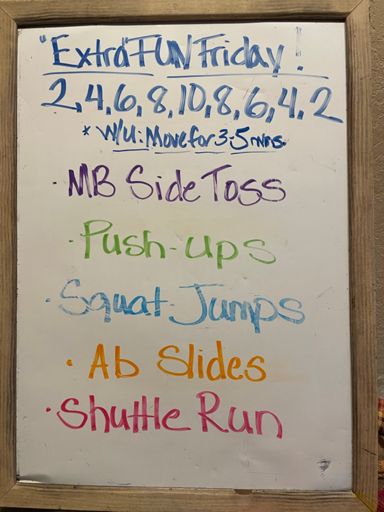 "Extra FUN Friday!
2,4,6,8,10,8,6,4,2
* W/U: Move for 3-5 mins.
· MB Side Toss
· Push-Ups
· Squat Jumps
· Ab Slides
· Shuttle Run